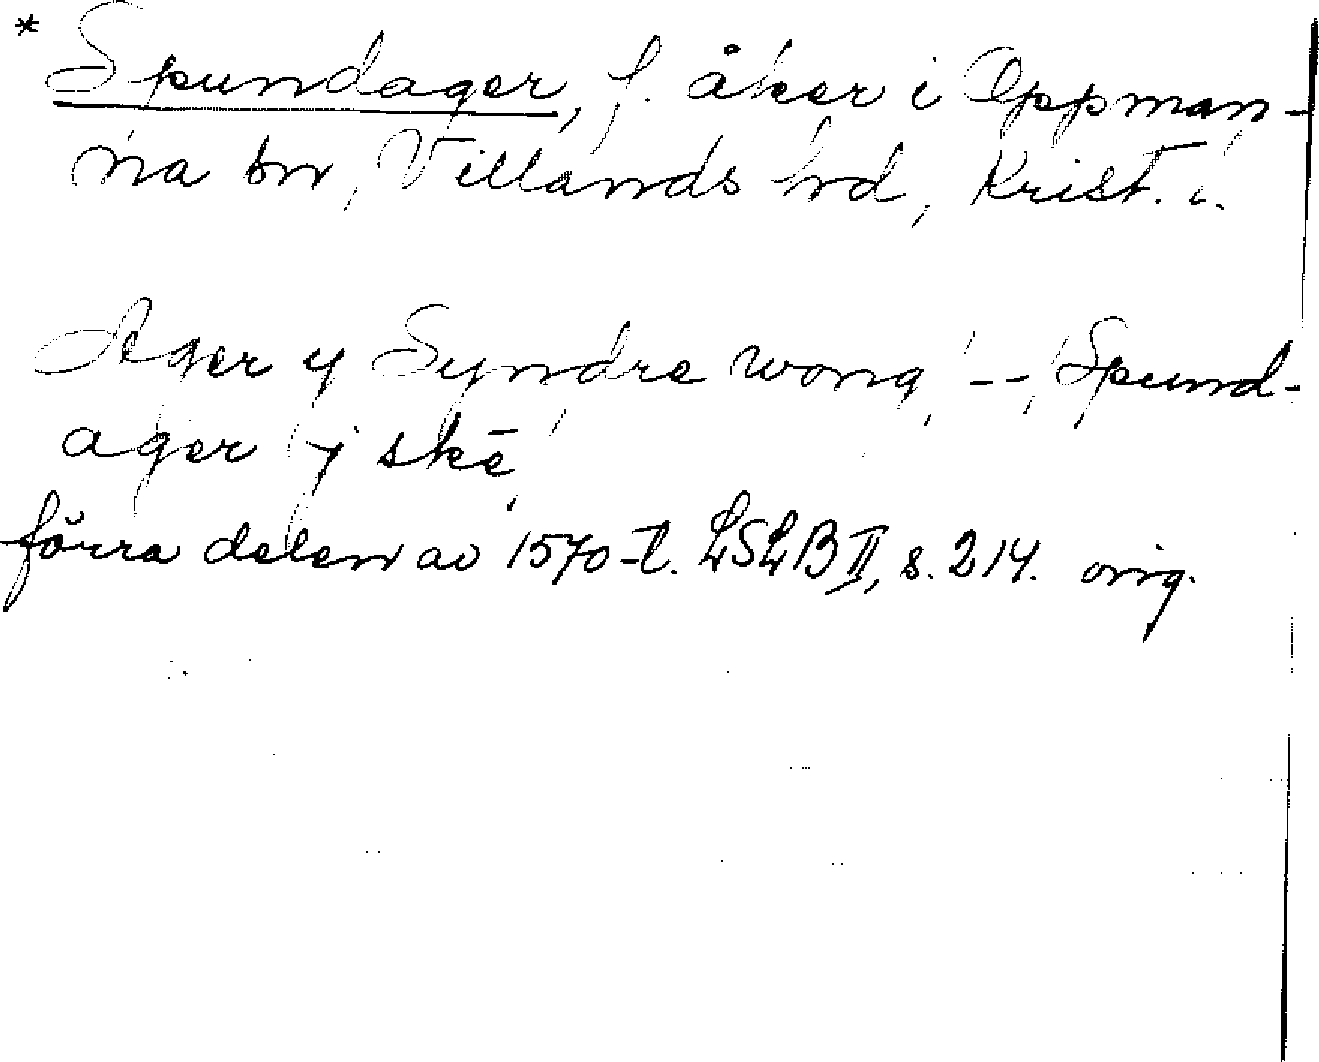 * Spundager, f. åker i Oppman-
na sn, Villands hd, Krist. l.
Ager y Syndre wong, --, Spund-
ager y skē
förra delen av 1570-t. LSLB II, s. 214. orig.